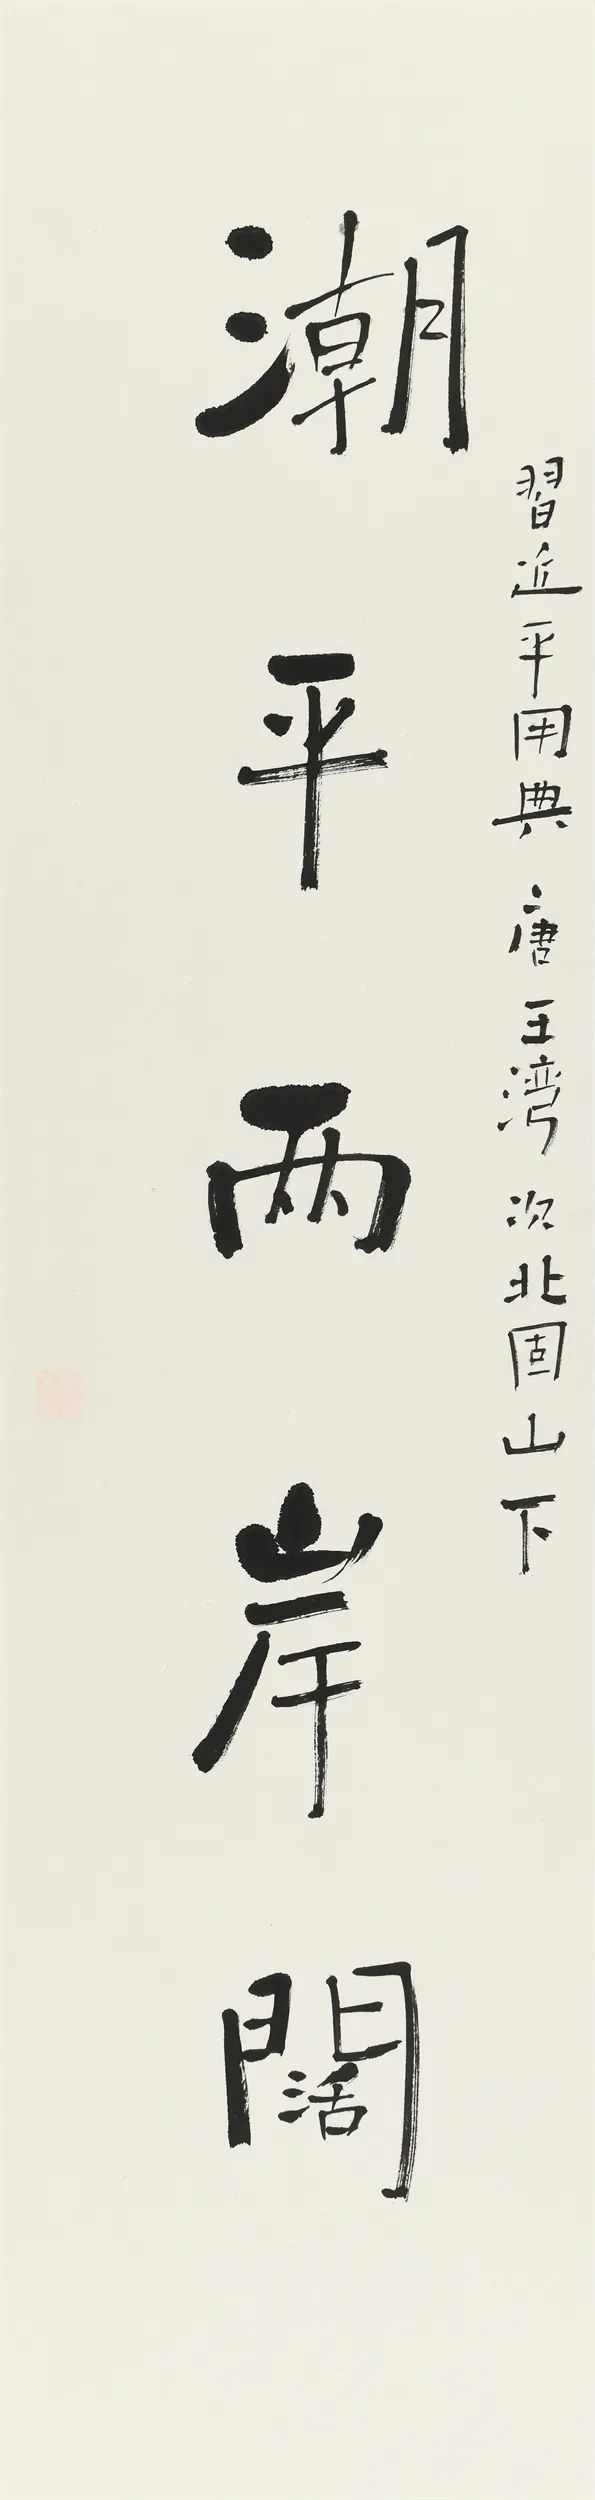 習近平用典 唐 王湾 次北固山下
潮平两岸闊